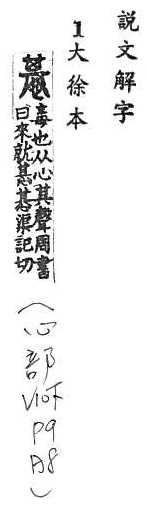 説文解字
1大徐本
惎毒也从心其聲周書
曰來就惎惎渠記切
(心部 V10下 P9 A8)